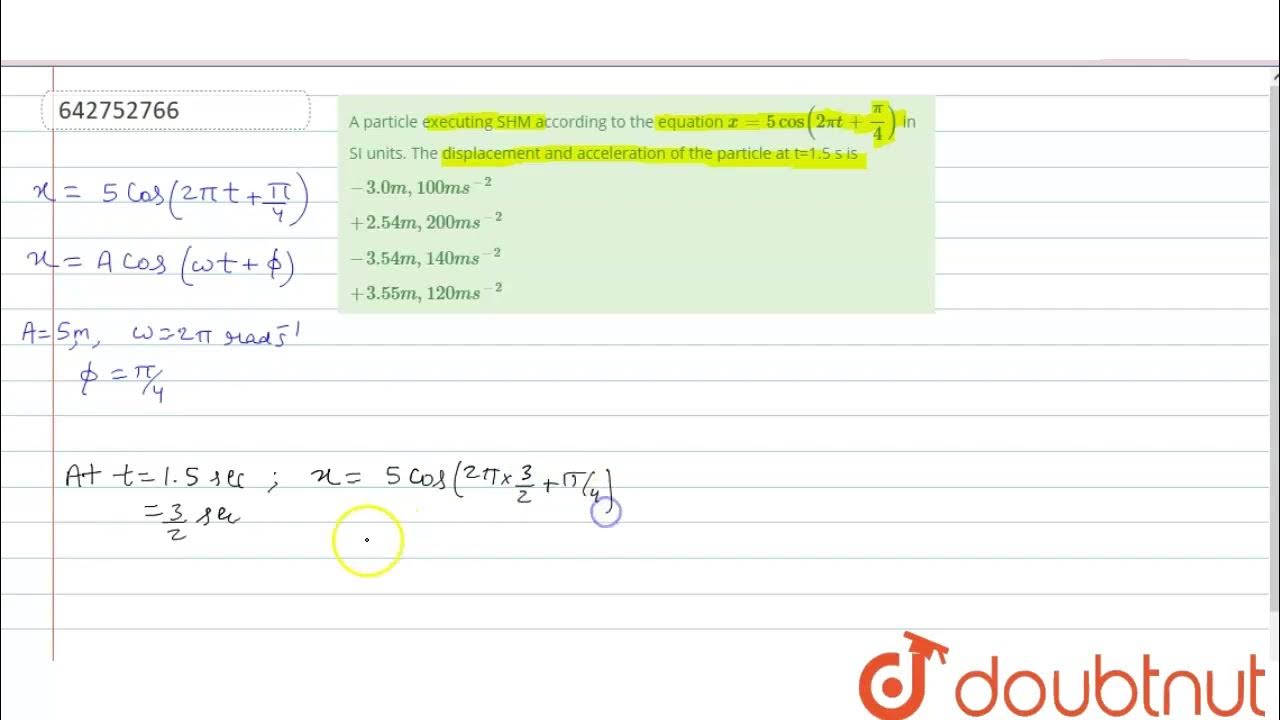 642752766
A particle executing SHM according to the equation x = 5 cos(2πt + π/4) in
SI units. The displacement and acceleration of the particle at t=1.5 s is
−3.0m, 100ms⁻²
+2.54m, 200ms⁻²
−3.54m, 140ms⁻²
+3.55m, 120ms⁻²
x = 5 Cos(2πt + π/4)
x = A Cos (ωt + φ)
A = 5m, ω = 2π rad s⁻¹
φ = π/4
At t = 1.5 sec ; x = 5 Cos(2π × 3/2 + π/4)
= 3/2 sec
doubtnut